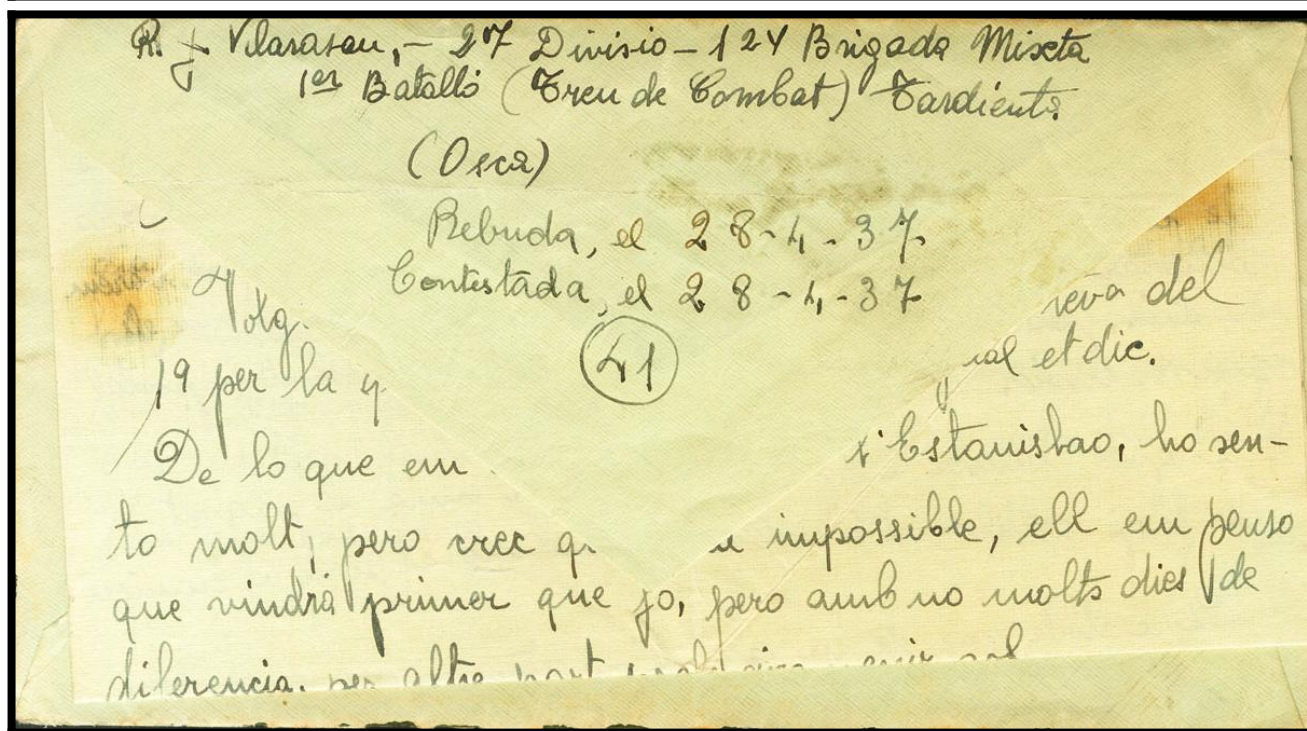 R. J. Vilarasau, - 27 Divisio - 124 Brigada Mixta
1er Batalló (Treu de Combat) Tardienta
(Osca)
Rebuda, el 28-4-37
Contestada, el 28-4-37
41
Totg. eva del
19 per la q ual et dic.
De lo que em l'Estanislao, ho sen-
to molt, pero crec q impossible, ell em penso
que vindrà primer que jo, pero amb no molts dies de
diferencia. per altre part